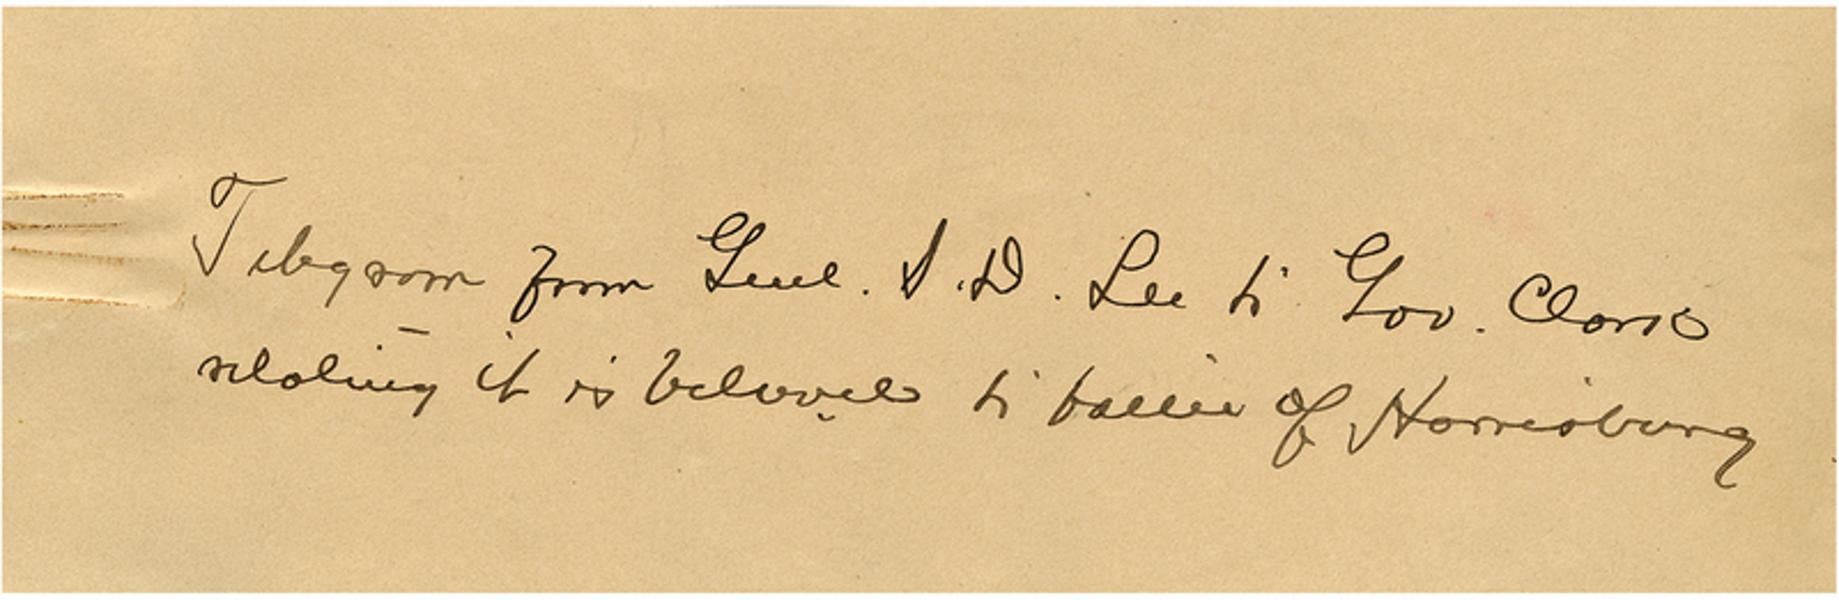 Telegram from Genl. S. D. Lee to Gov. Clark
relating it is believed to battle of Harrisburg